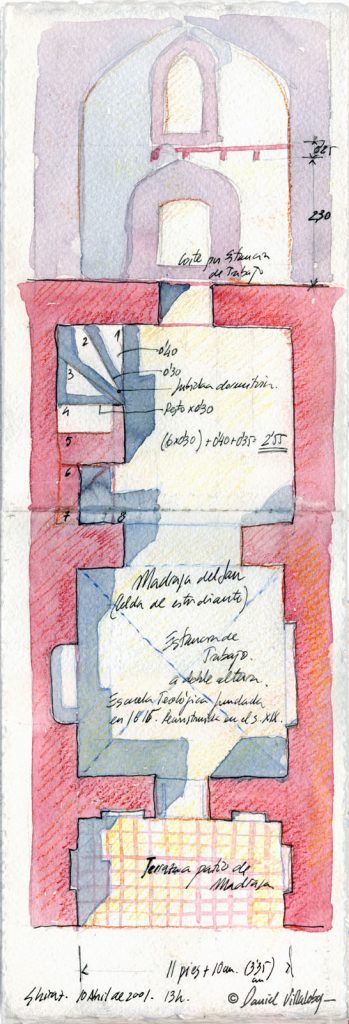 0'25
2'30
Corte por Estancia
de Trabajo
1
2
3
4
5
6
7
8
0'40
0'30
subida dormitorio.
Peto x 0'30
(6 x 0'30) + 0'40 + 0'35 = 2'55
Madraja del Jan
(Celda de estudiante)
Estancia de
Trabajo.
a doble altura.
Escuela Teológica fundada
en 1615. Reconstruida en el s. XIX.
Terraza a patio de
Madraja
11 pies + 10 cm. (3'35)
Shiraz. 10 Abril de 2001. 13h. © Daniel Villalobos